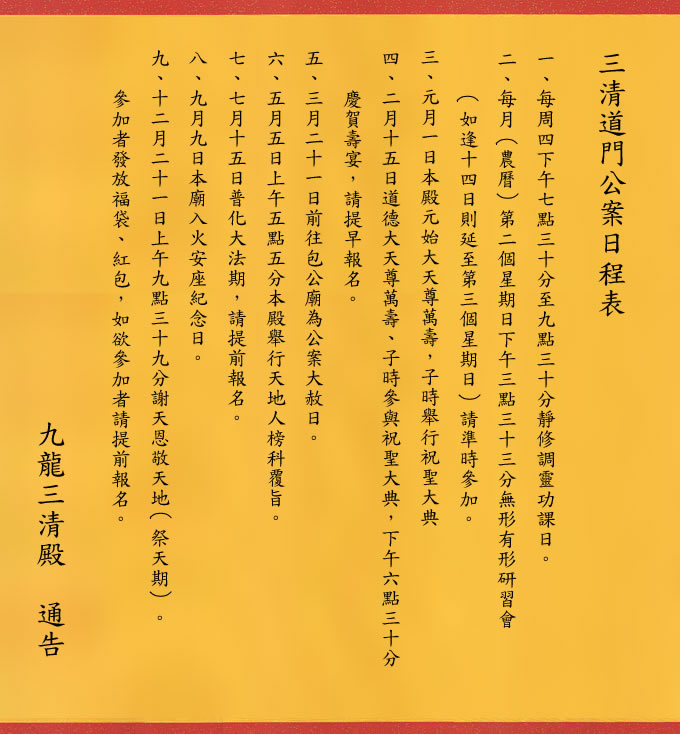 三清道門公案日程表
一、每周四下午七點三十分至九點三十分靜修調靈功課日。
二、每月(農曆)第二個星期日下午三點三十三分無形有形研習會
(如逢十四日則延至第三個星期日)請準時參加。
三、元月一日本殿元始大天尊萬壽，子時舉行祝聖大典
四、二月十五日道德大天尊萬壽、子時參與祝聖大典，下午六點三十分
慶賀壽宴，請提早報名。
五、三月二十一日前往包公廟為公案大赦日。
六、五月五日上午五點五分本殿舉行天地人榜科覆旨。
七、七月十五日普化大法期，請提前報名。
八、九月九日本廟入火安座紀念日。
九、十二月二十一日上午九點三十九分謝天恩敬天地(祭天期)。
參加者發放福袋、紅包，如欲參加者請提前報名。
九龍三清殿 通告